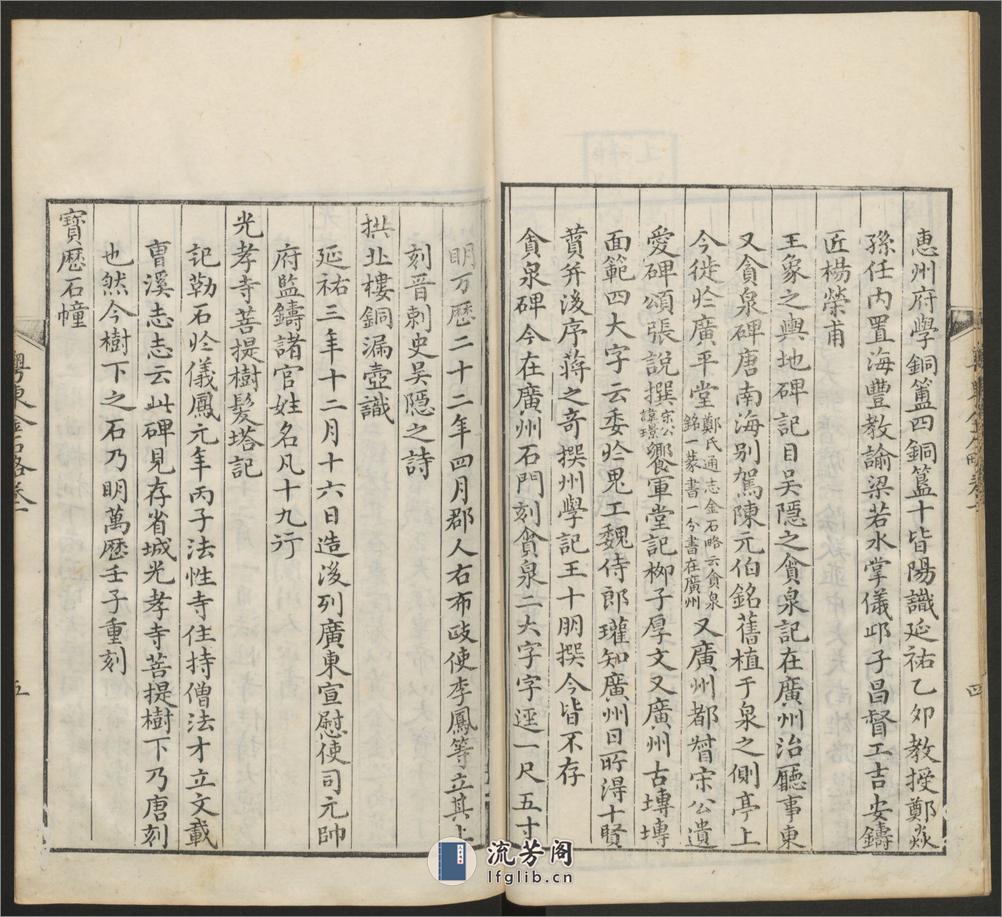 惠州府學銅簠四銅簋十皆陽識延祐乙卯教授鄭焱
孫任內置海豐教諭梁若水掌儀邱子昌督工吉安鑄
匠楊榮甫
王象之輿地碑記目吳隱之貪泉記在廣州治廳事東
又貪泉碑唐南海別駕陳元伯銘舊植于泉之側亭上
今徙於廣平堂鄭氏通志金石略云貪泉銘一篆書一分書在廣州又廣州都督宋公遺
愛碑頌張說撰宋公諱璟饗軍堂記柳子厚文又廣州古塼塼
面範四大字云委於鬼工魏侍郎瓘知廣州日所得十賢
贊并後序蔣之奇撰州學記王十朋撰今皆不存
貪泉碑今在廣州石門刻貪泉二大字字逕一尺五寸
四
明万歷二十二年四月郡人右布政使李鳳等立其上
刻晉刺史吳隱之詩
拱北樓銅漏壺識
延祐三年十二月十六日造後列廣東宣慰使司元帥
府監鑄諸官姓名凡十九行
光孝寺菩提樹髮塔記
記勒石於儀鳳元年丙子法性寺住持僧法才立文載
曹溪志志云此碑見存省城光孝寺菩提樹下乃唐刻
也然今樹下之石乃明萬歷壬子重刻
寶歷石幢
粵東金石略卷一
五
流芳阁
lfglib.cn